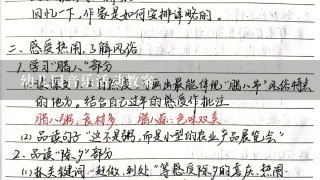 回忆一下,作家是如何安排详略的。
二、感受热闹,了解风俗
1.学习“腊八”部分
画出最能体现“腊八节”风俗特点
的地方。结合自己过年的感受作批注
腊八粥:食材多 腊八蒜:色味双美
(2)品读句子“这不是粥,而是小型的农业产品展览会”
2.品读“除夕”部分
(1)抓关键词,“赶做,到处”等感受除夕的喜庆、热闹.